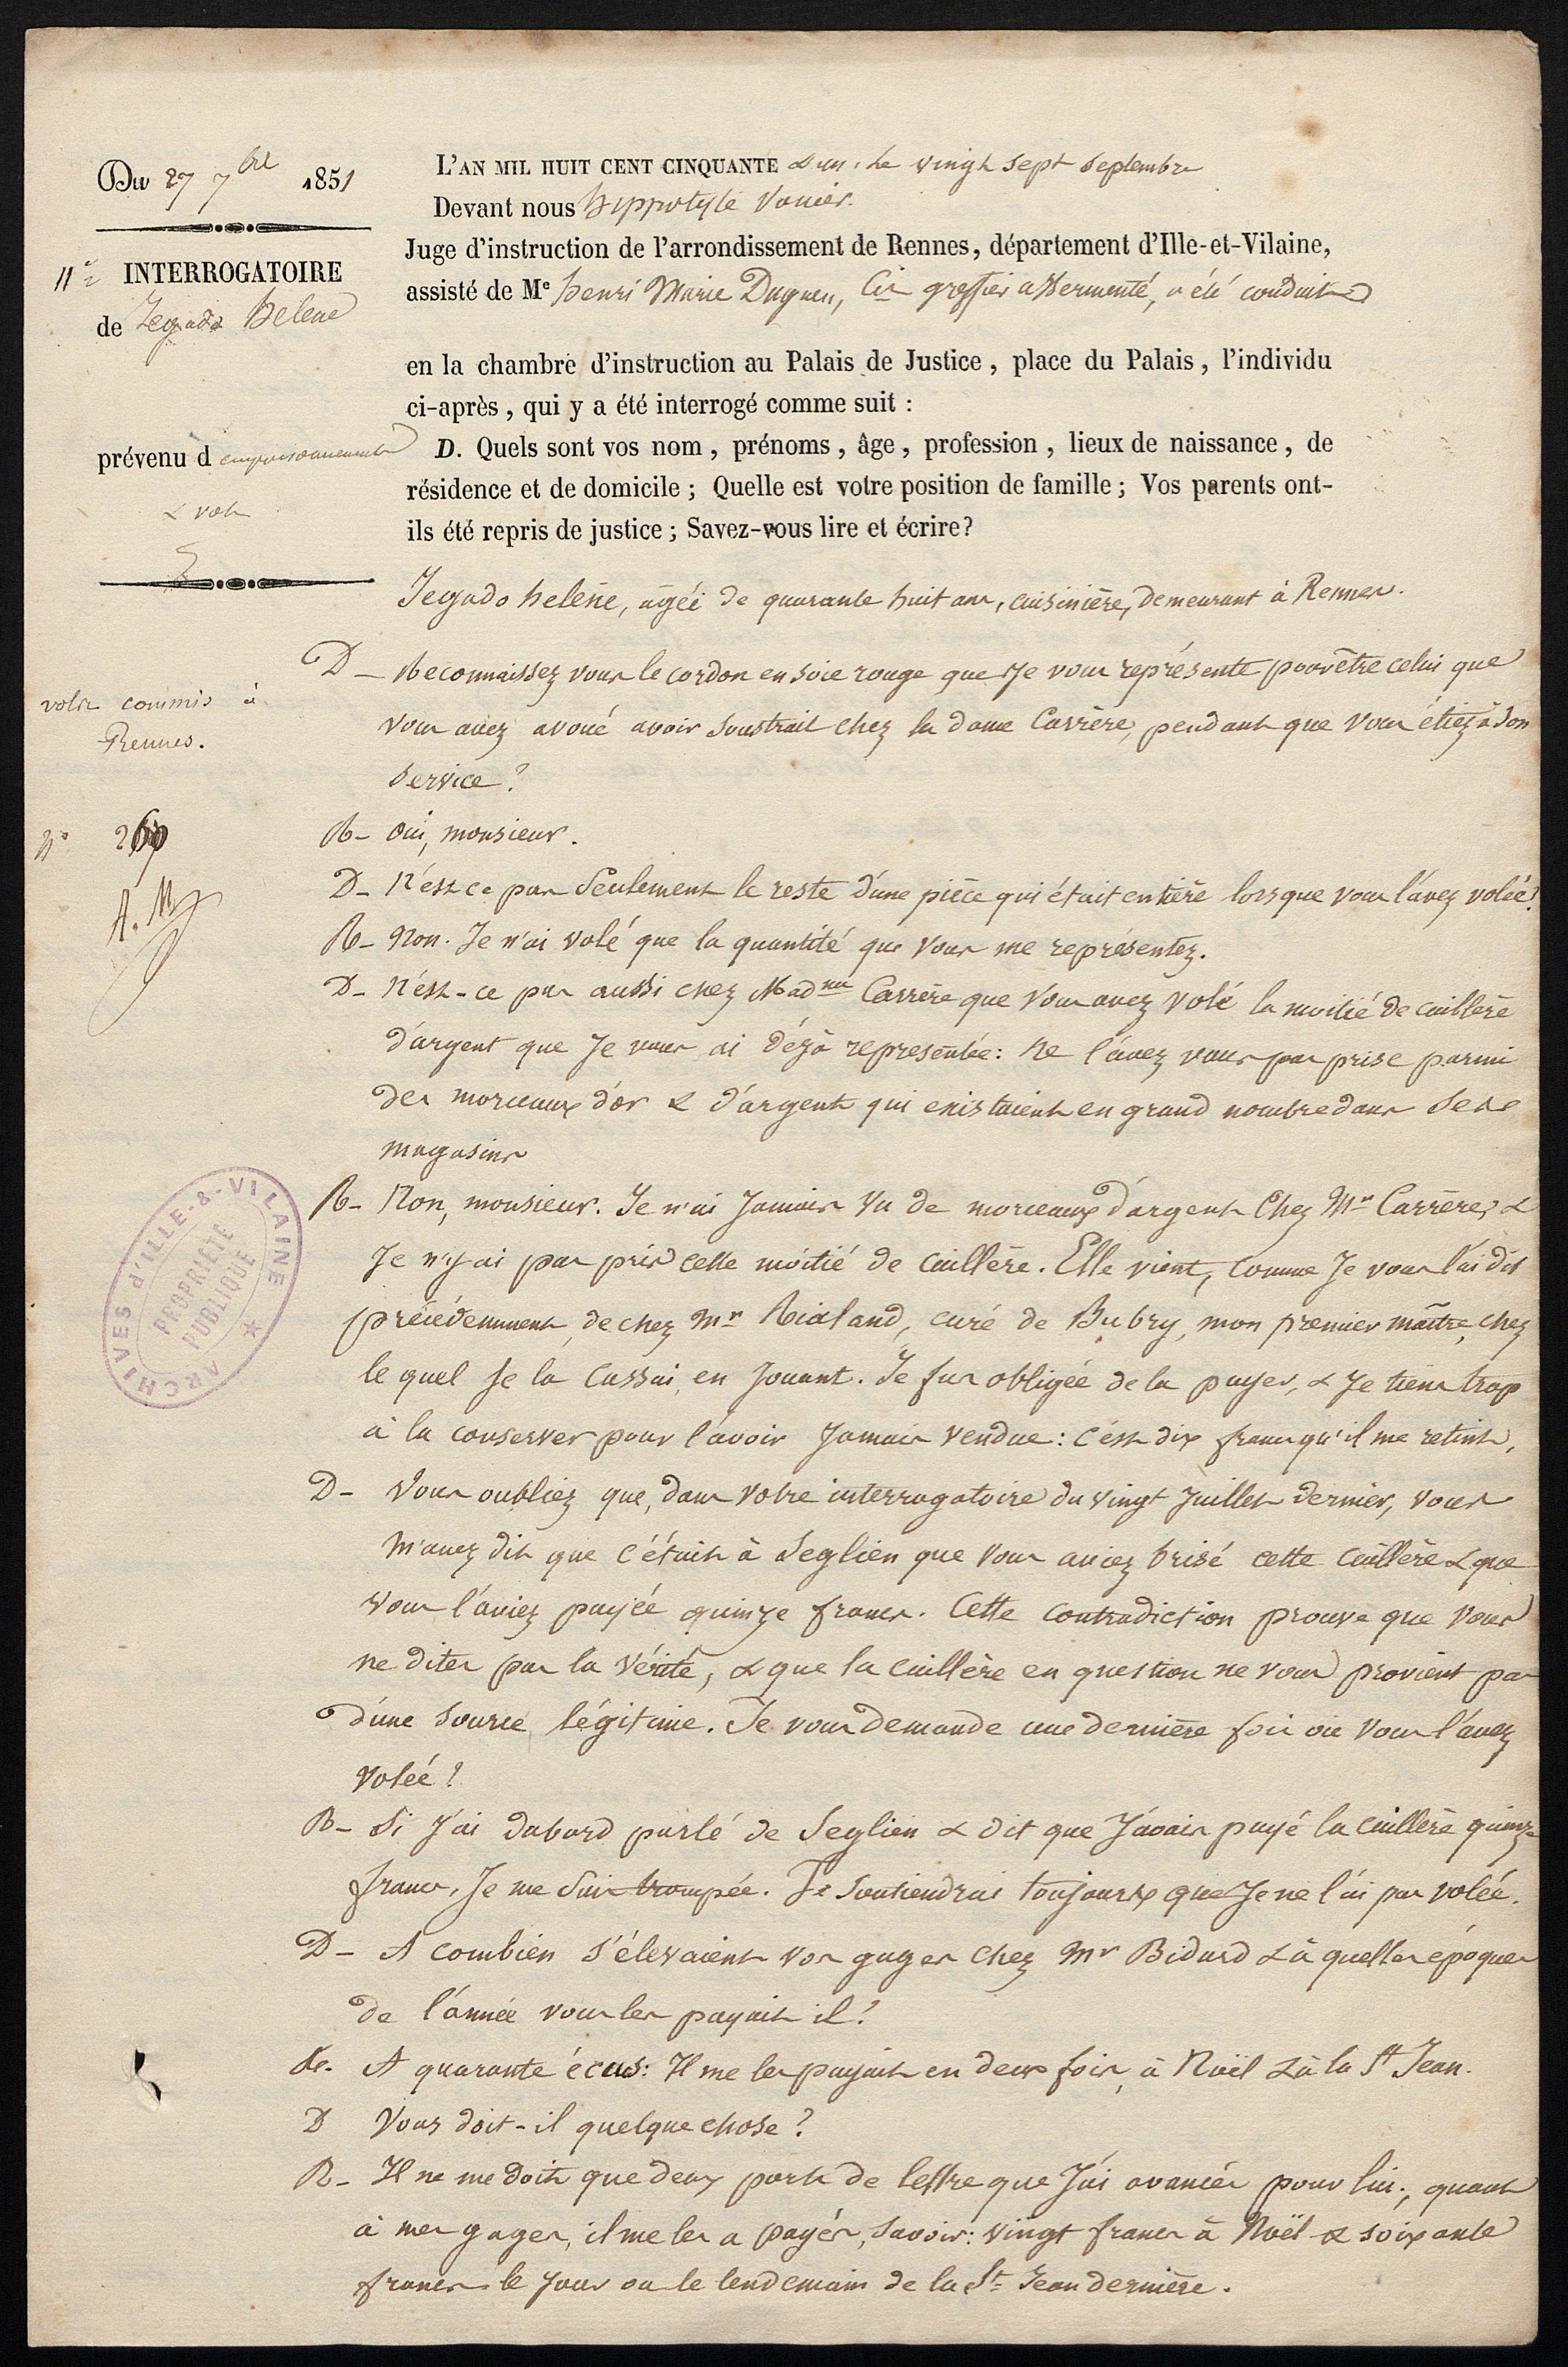 Du 27 7bre 1851
11e INTERROGATOIRE
de Jegado helene
prévenu d empoisonnements
& vols
vols commis à
Rennes.
No
A. M
ARCHIVES d'ILLE-&-VILAINE
PROPRIETE
PUBLIQUE
L'AN MIL HUIT CENT CINQUANTE & un, le vingt sept septembre
Devant nous hippolyte Vanier.
Juge d'instruction de l'arrondissement de Rennes, département d'Ille-et-Vilaine,
assisté de Me henri Marie Duguen, Cis greffier assermenté, a été conduite
en la chambre d'instruction au Palais de Justice, place du Palais, l'individu
ci-après, qui y a été interrogé comme suit :
D. Quels sont vos nom, prénoms, âge, profession, lieux de naissance, de
résidence et de domicile ; Quelle est votre position de famille ; Vos parents ont-
ils été repris de justice ; Savez-vous lire et écrire ?
Jegado helène, agéé de quarante huit ans, cuisinière, demeurant à Rennes.
D – Reconnaissez vous le cordon en soie rouge que je vous représente pour être celui que
vous avez avoué avoir soustrait chez la dame Carrère, pendant que vous étiez à son
service ?
R – Oui, monsieur.
D – N'est ce pas seulement le reste d'une pièce qui était entière lorsque vous l'avez volée ?
R – Non. Je n'ai volé que la quantité que vous me représentez.
D – N'est-ce pas aussi chez Madme Carrère que vous avez volé la moitié de cuillère
d'argent que Je vous ai déjà representée : ne l'avez vous pas prise parmi
des morceaux d'or & d'argent qui existaient en grand nombre dans ses
magasins
R – Non, monsieur. Je n'ai Jamais vu de morceaux d'argent chez Mr Carrère, &
Je n'y ai pas pris cette moitié de cuillère. Elle vient, comme Je vous l'ai dit
précédemment, de chez Mr Rialand, curé de Bubry, mon premier maître, chez
le quel Je la cassai, en Jouant. Je fus obligée de la payer, & Je tiens trop
à la conserver pour l'avoir Jamais vendue : c'est dix francs qu'il me retint,
D – Vous oubliez que, dans votre interrogatoire du vingt Juillet dernier, vous
m'avez dit que c'était à Seglien que vous aviez brisé cette cuillère & que
vous l'aviez payée quinze francs. Cette contradiction prouve que vous
ne dites pas la vérité, & que la cuillère en question ne vous provient pas
d'une source légitime. Je vous demande une dernière fois où vous l'avez
volée ?
R – Si J'ai dabord parlé de Seglien & dit que J'avais payé la cuillère quinze
francs, Je me suis trompée. Je soutiendrai toujours que Je ne l'ai pas volée.
D – A combien s'élevaient vos gages chez Mr Bidard & à quelles époques
de l'année vous les payait il ?
R. A quarante écus : Il me les payait en deux fois, à Noël & à la St Jean.
D Vous doit-il quelque chose ?
R – Il ne me doit que deux ports de lettre que J'ai avancés pour lui ; quant
à mes gages, il me les a payés, savoir : vingt francs à Noël & soixante
francs le Jour ou le lendemain de la St Jean dernière.